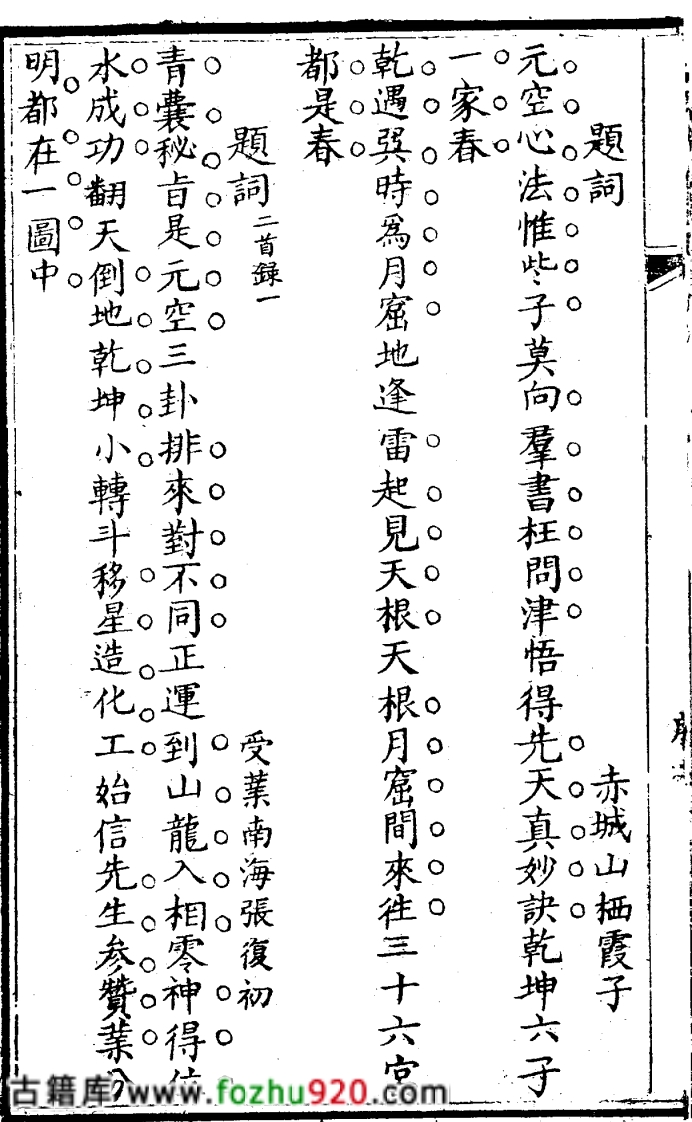 題詞 赤城山栖霞子
元空心法惟些子莫向羣書枉問津悟得先天真妙訣乾坤六子
一家春
乾遇巽時為月窟地逢雷起見天根天根月窟間來徃三十六宮
都是春
題詞二首錄一 受業南海張復初
青囊秘旨是元空三卦排來對不同正運到山龍入相零神得位
水成功翻天倒地乾坤小轉斗移星造化工始信先生參贊業分
明都在一圖中
古籍库 www.fozhu920.com